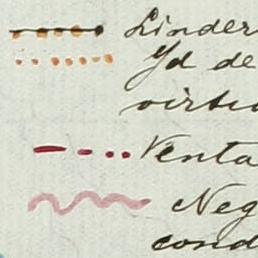 Linder
Yd de
virtu
Venta
Neg
cond